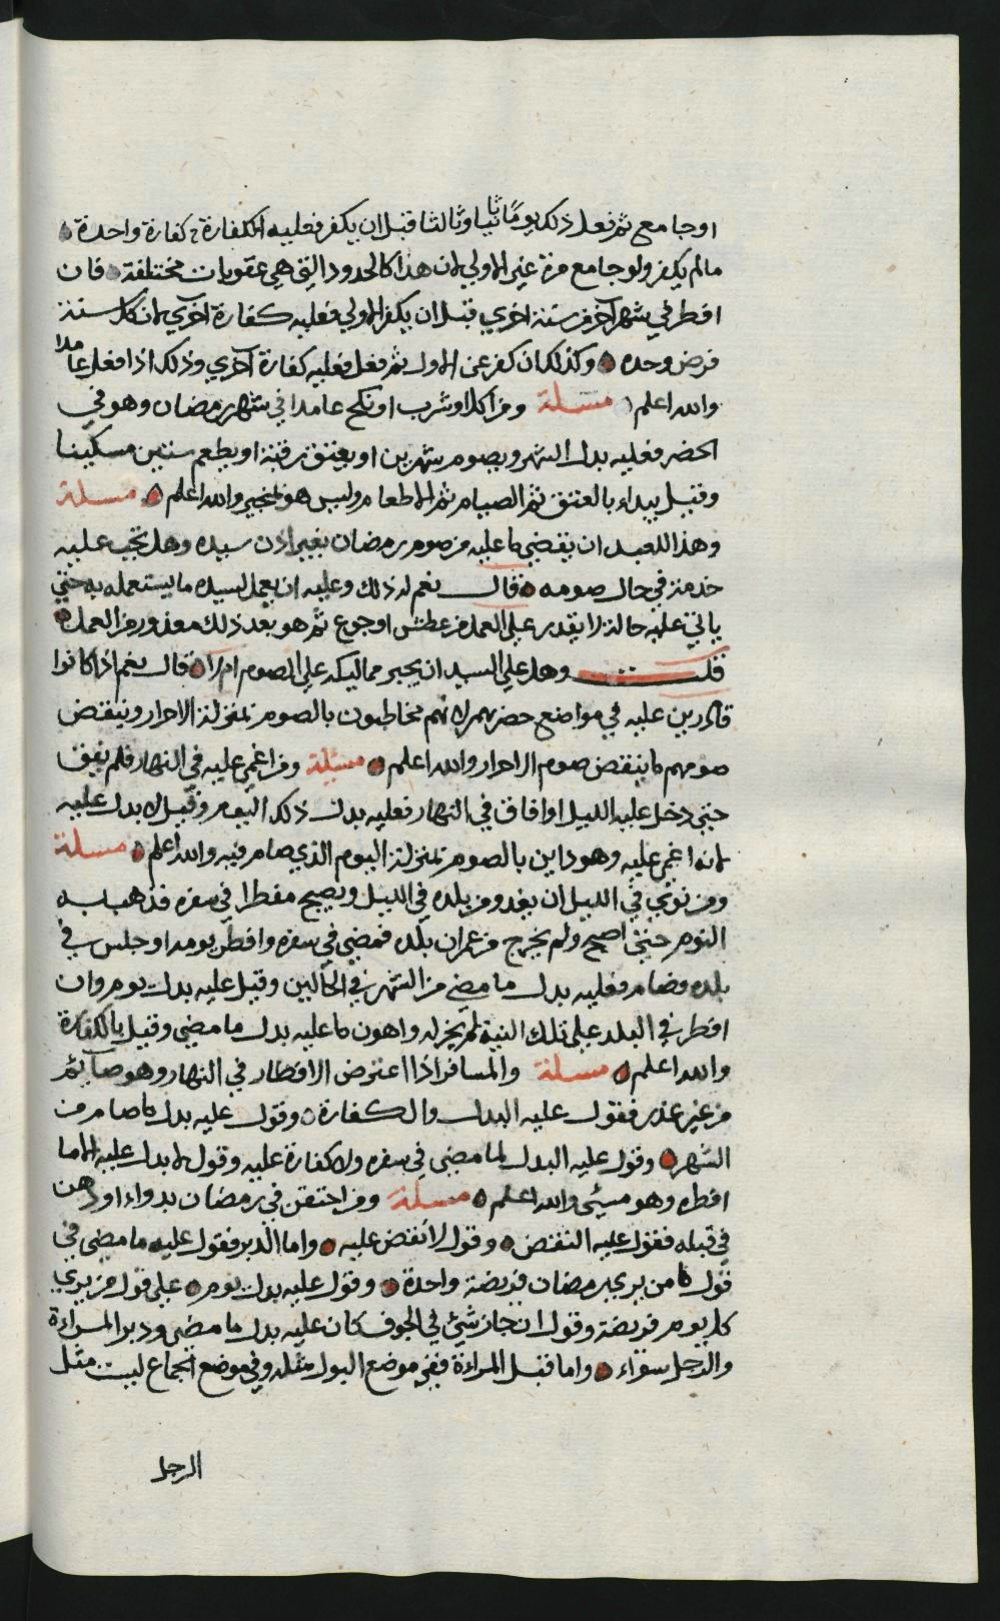 اوجامع ثم فعل ذلك يومًا ثانيا وثالثا قبل ان يكفر فعليه الكفارة كفارة واحدة
مالم يكفر ولو جامع مرة غير الاولي لان هذا كالحدود التي هي عقوبات مختلفة فان
افطر في شهر آخر من سنة اخري قبل ان يكفر الاولي فعليه كفارة اخري لان كل سنة
فرض وحده وكذلك ان كفر عن الاول ثم فعل فعليه كفارة اخري وذلك اذا فعل عامدا
والله اعلم مسئلة ومن اكل او شرب او نكح عامدا في شهر رمضان وهو في
الحضر فعليه بدل الشهر ويصوم شهرين او يعتق رقبة او يطعم ستين مسكينا
وقيل يبداء بالعتق ثم الصيام ثم الاطعام وليس هو بمخير والله اعلم مسلة
وهذا للعبد ان يقضي ما عليه من صوم رمضان بغير اذن سيده وهل تجب عليه
خدمة في حال صومه قال نعم له ذلك وعليه ان يعمل لسيده ما يستعمله به حتي
ياتي عليه حالة لا يقدر علي العمل من عطش او جوع ثم هو بعد ذلك معذور من العمل
قلت وهل علي السيد ان يجبر مماليكه علي الصوم ام لا قال نعم اذا كانوا
قادرين عليه في مواضع حضرهم لانهم مخاطبون بالصوم بمنزلة الاحرار وينقض
صومهم ما ينقض صوم الاحرار والله اعلم مسئلة ومن اغمي عليه في النهار فلم يفق
حتي دخل عليه الليل او افاق في النهار فعليه بدل ذلك اليوم وقيل لا بدل عليه
لانه اغمي عليه وهو داين بالصوم بمنزلة اليوم الذي صام فيه والله اعلم مسلة
ومن نوي في الليل ان يغدو من بلده في الليل ويصبح مفطرا في سفره فذهب به
النوم حتي اصبح ولم يخرج من عمران بلده فمضي في سفره وافطر يومه او جلس في
بلده وصام فعليه بدل ما مضي من الشهر في الحالين وقيل عليه بدل يوم وان
افطر في البلد علي تلك النية لم يجز له واهون ما عليه بدل ما مضي وقيل بالكفارة
والله اعلم مسلة والمسافر اذا اعترض الافطار في النهار وهو صآئم
من غير عذر فقول عليه البدل والكفارة وقول عليه بدل ما صام من
الشهر وقول عليه البدل لما مضي في سفره ولا كفارة عليه وقول لا بدل عليه الا ما
افطره وهو مسيئ والله اعلم مسلة ومن احتقن في رمضان بدواء او دهن
في قبله فقول عليه النقض وقول لا نقض عليه واما الدبر فقول عليه ما مضي في
قول من يري رمضان فريضة واحدة وقول عليه بدل يوم علي قول من يري
كل يوم فريضة وقول ان جاز شيئ في الجوف كان عليه بدل ما مضي ودبر المراءة
والرجل سوآء واما قبل المراءة ففي موضع البول مثله وفي موضع الجماع ليست مثل
الرجل